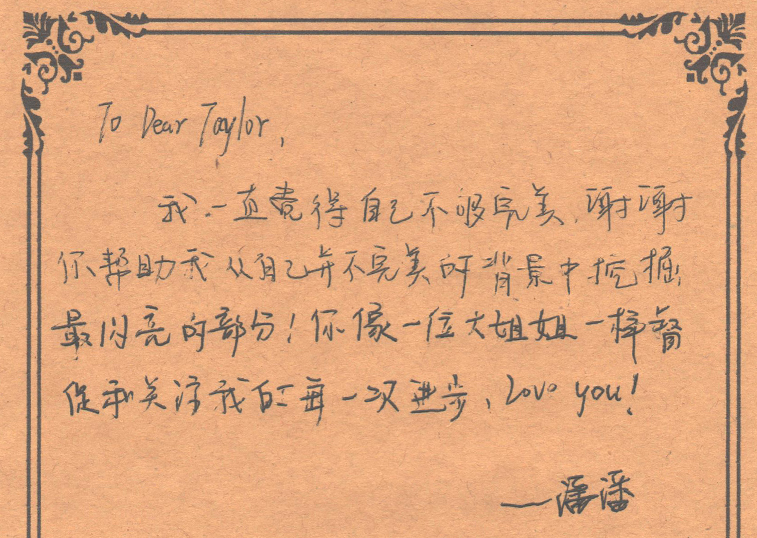 To Dear Taylor,
我一直觉得自己不够完美,谢谢
你帮助我从自己并不完美的背景中挖掘
最闪亮的部分!你像一位大姐姐一样督
促和关注我的每一次进步,Love you!
——潘潘